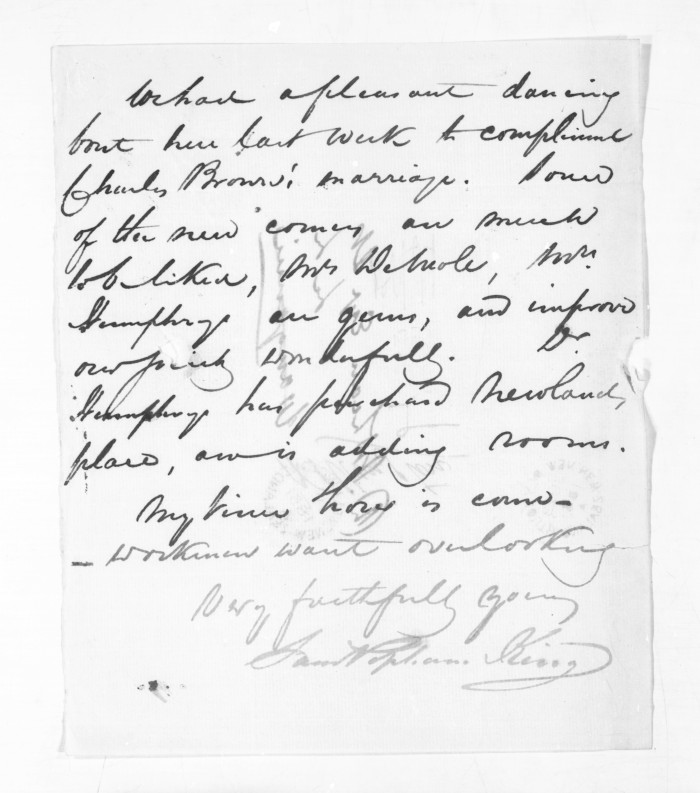 We had a pleasant dancing
bout here last week to compliment
Charles Brown's marriage. Some
of the new comers are much
to be liked, Mrs Mrs
Humphrys are gems, and improve
our society wonderfully. Dr
Humphrys has purchased Newlands
place, and is adding rooms.
My time is come -
- workmen want overlooking
Very faithfully yours
Saml Popham King